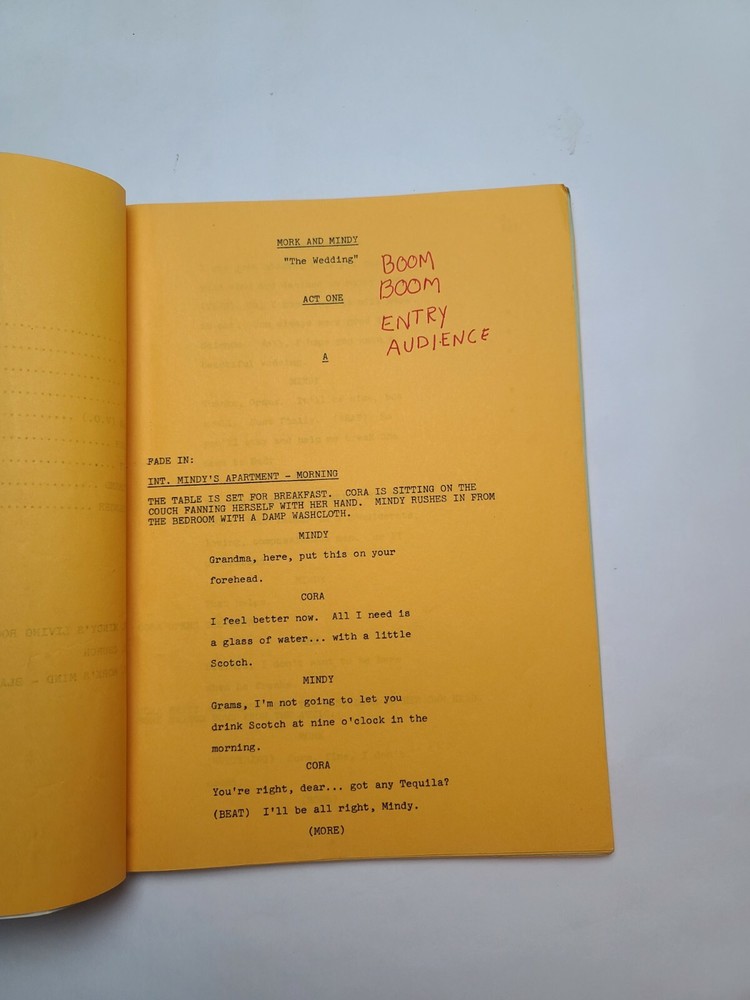 MORK AND MINDY
"The Wedding"
BOOM
BOOM
ACT ONE
ENTRY
AUDIENCE
A
FADE IN:
INT. MINDY'S APARTMENT - MORNING
THE TABLE IS SET FOR BREAKFAST. CORA IS SITTING ON THE
COUCH FANNING HERSELF WITH HER HAND. MINDY RUSHES IN FROM
THE BEDROOM WITH A DAMP WASHCLOTH.
MINDY
Grandma, here, put this on your
forehead.
CORA
I feel better now. All I need is
a glass of water... with a little
Scotch.
MINDY
Grams, I'm not going to let you
drink Scotch at nine o'clock in the
morning.
CORA
You're right, dear... got any Tequila?
(BEAT) I'll be all right, Mindy.
(MORE)